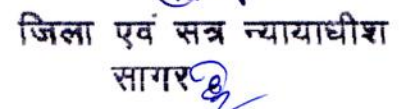 जिला एवं सत्र न्यायाधीश
सागर